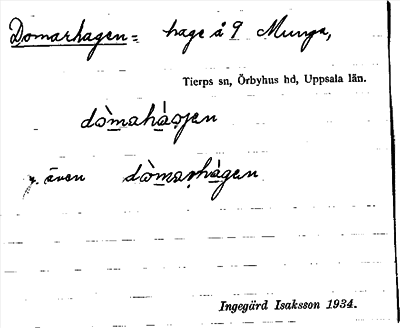 Domarhagen = hage å 9 Munga,
Tierps sn, Örbyhus hd, Uppsala län.
dòmahágen
även dòmarhágen
Ingegärd Isaksson 1934.